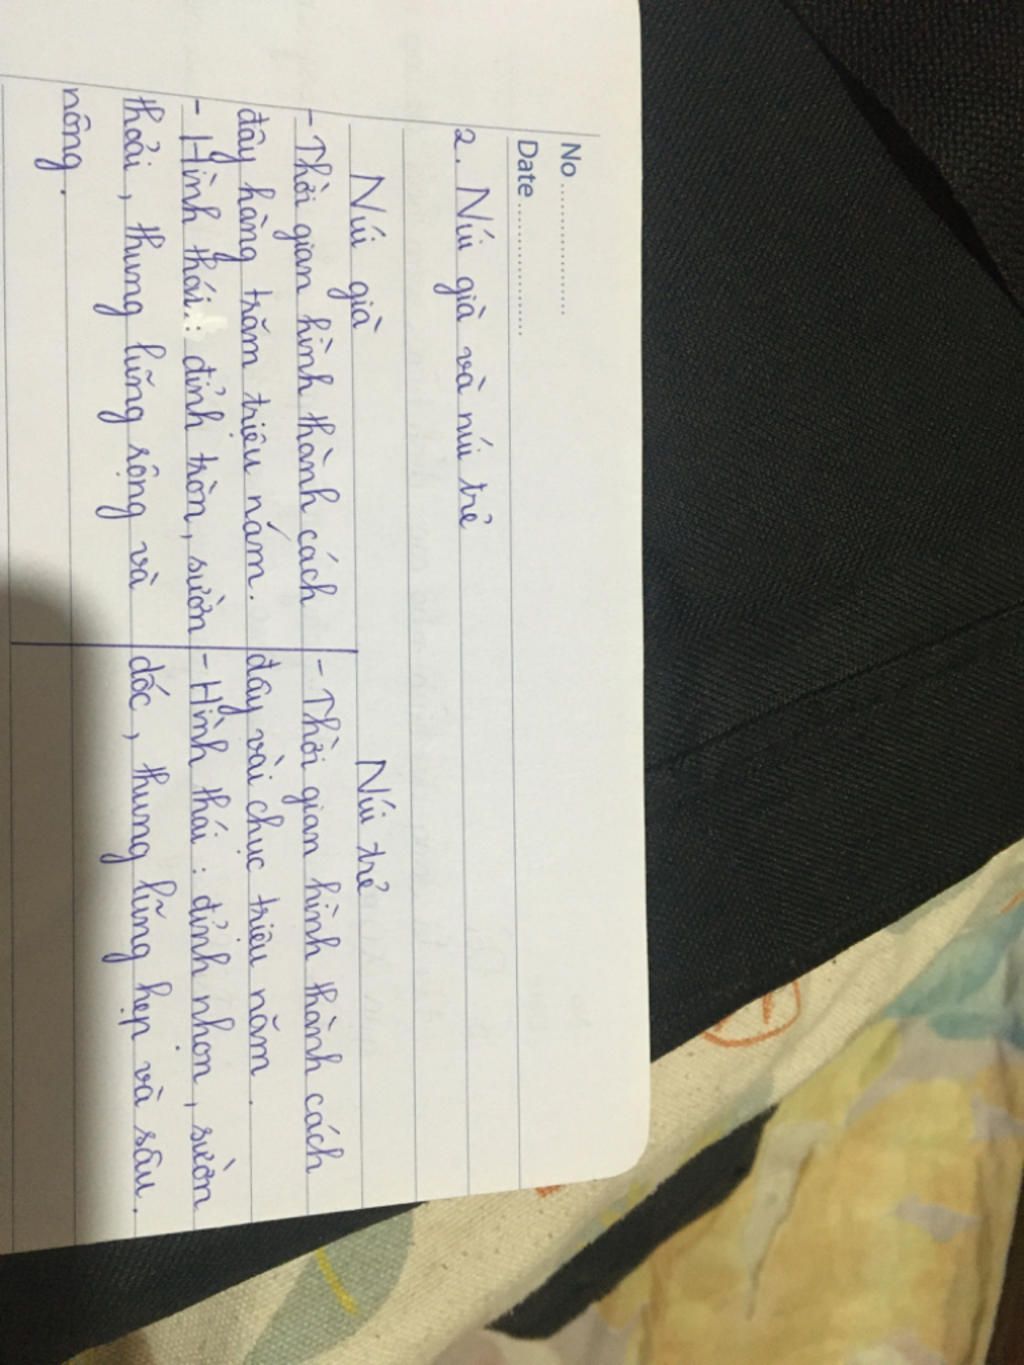 No ................
Date ................
2. Núi già và núi trẻ
Núi già
- Thời gian hình thành cách
đây hàng trăm triệu năm.
- Hình thái : đỉnh tròn, sườn
thoải, thung lũng rộng và
nông.
Núi trẻ
- Thời gian hình thành cách
đây vài chục triệu năm.
- Hình thái : đỉnh nhọn, sườn
dốc, thung lũng hẹp và sâu.